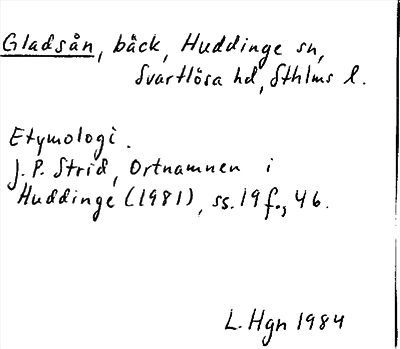 Gladsån, bäck, Huddinge sn,
Svartlösa hd, Sthlms l.
Etymologi.
J. P. Strid, Ortnamnen i
Huddinge (1981), ss. 19 f., 46.
L. Hgn 1984